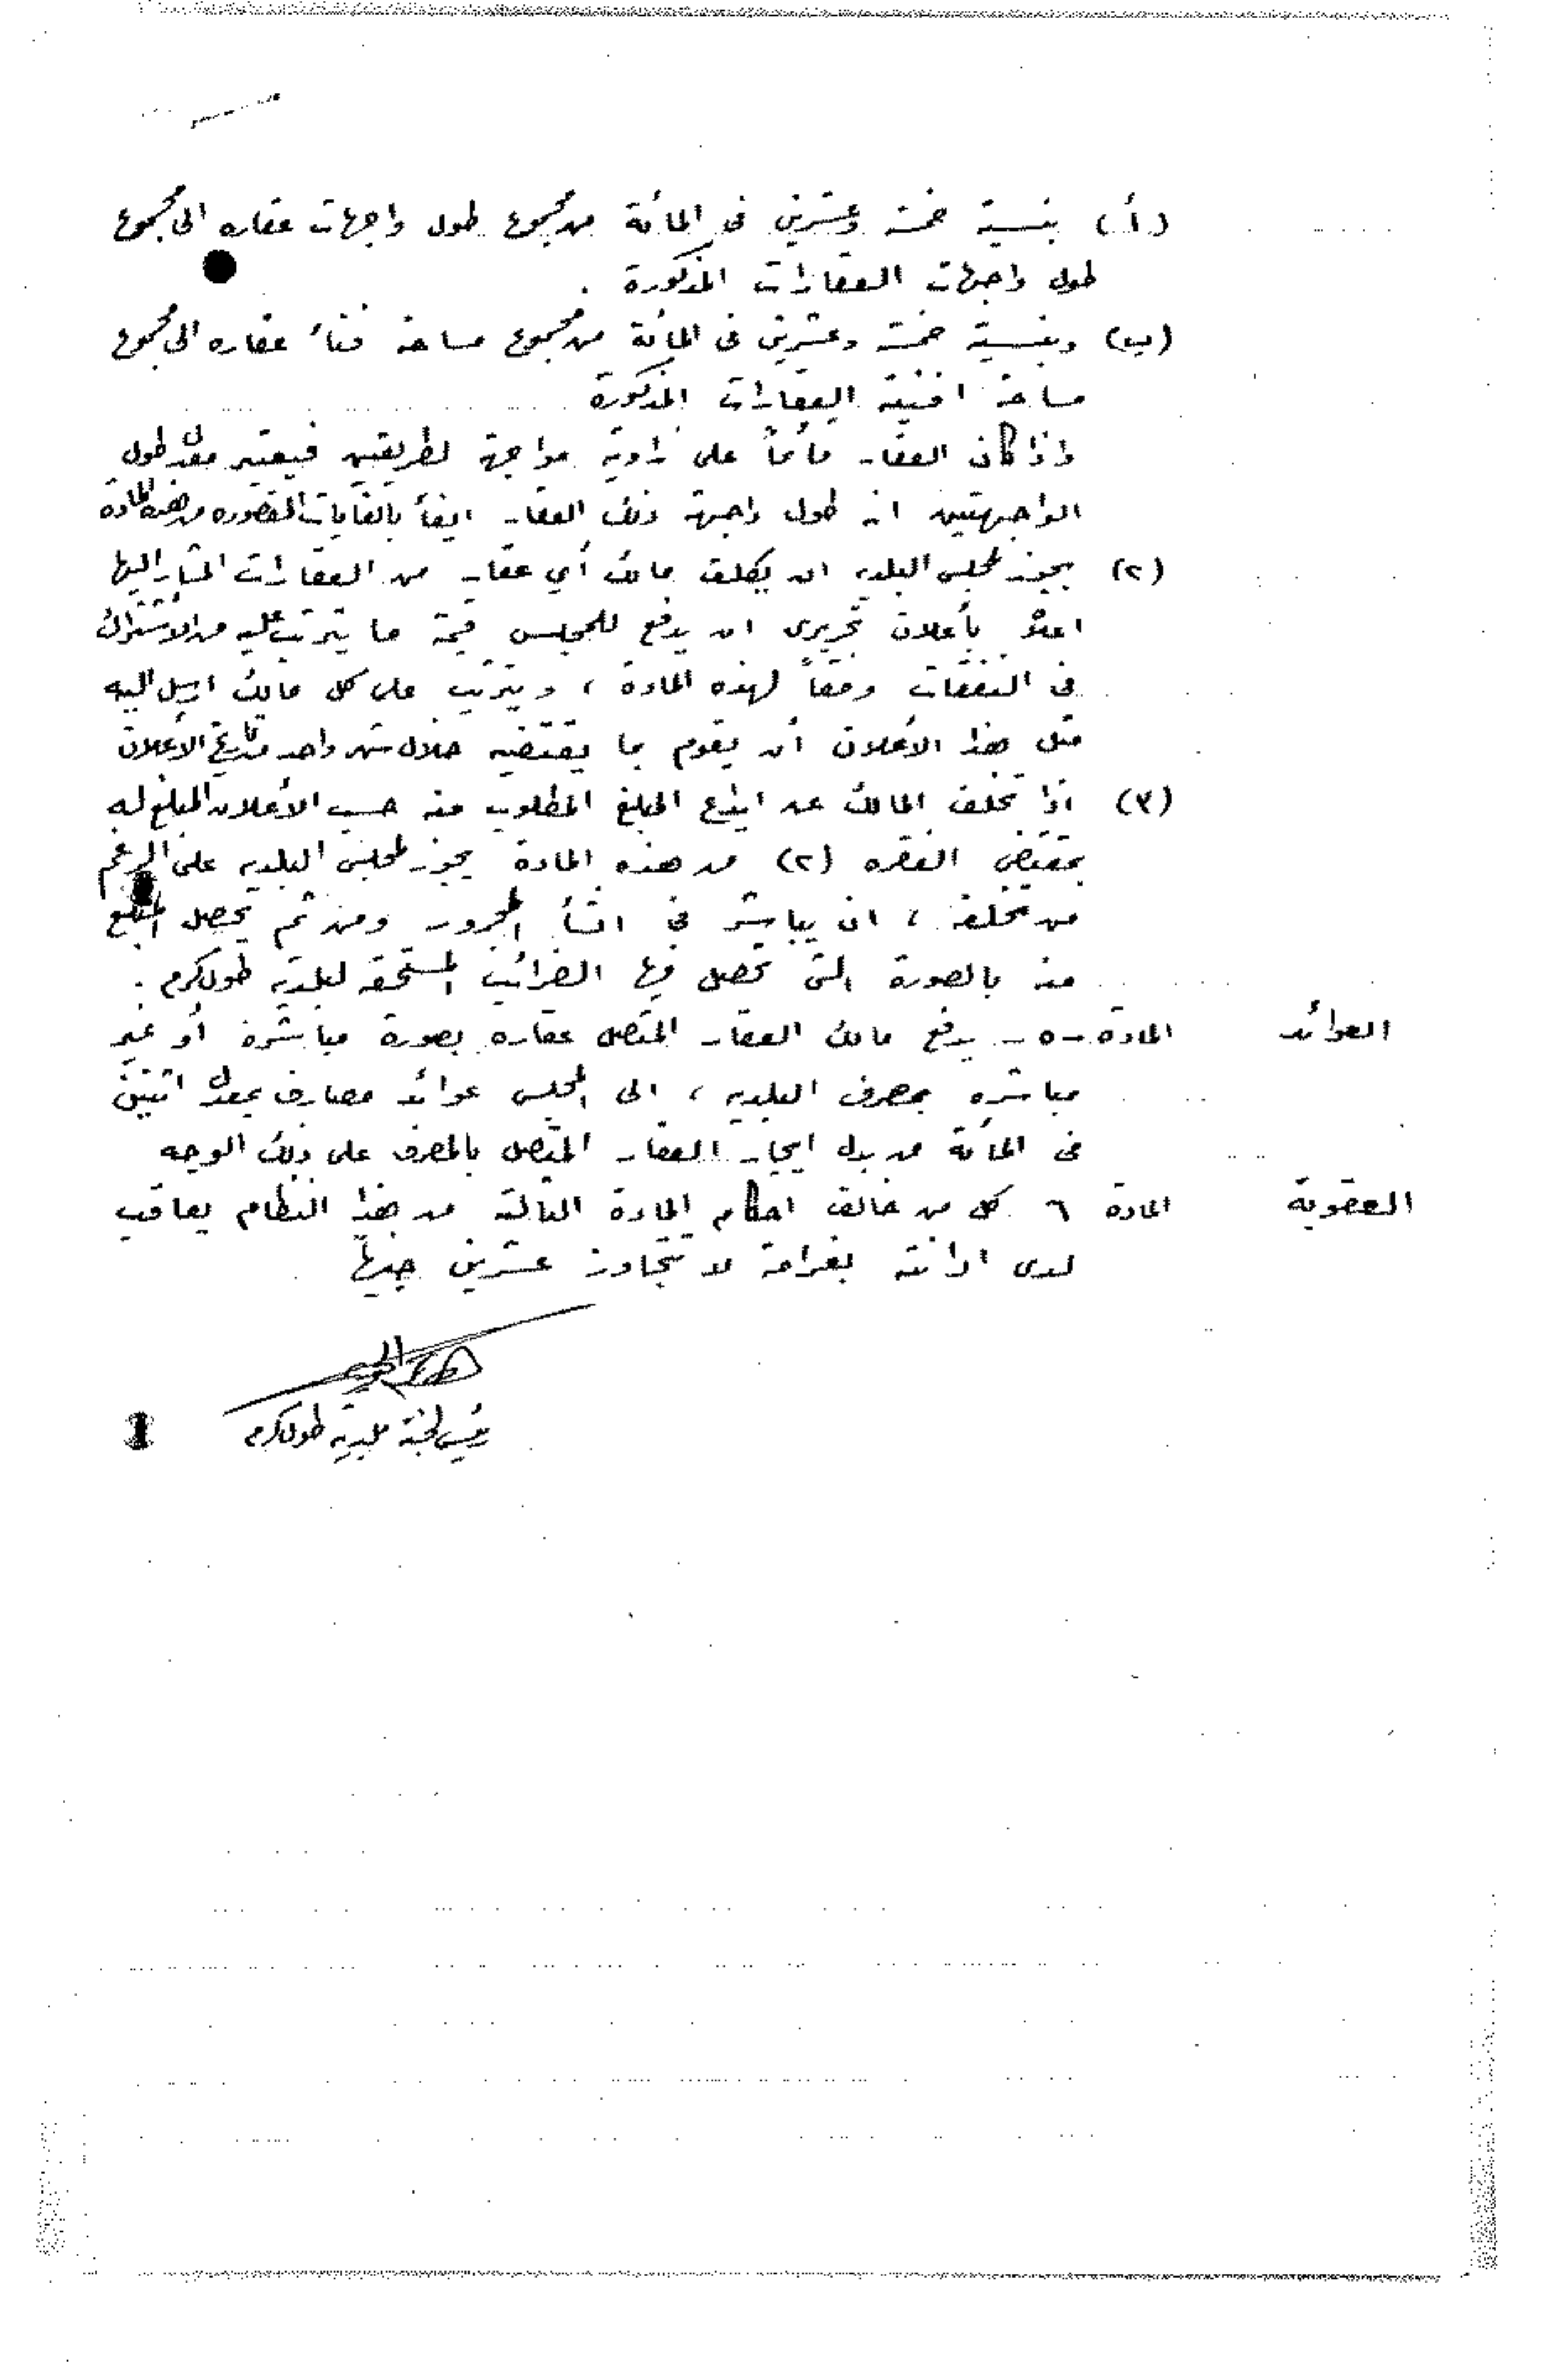 (أ) بنسبة خمسة وعشرين في المائة من مجموع طول واجهات عقاره الى مجموع
طول واجهات العقارات المذكورة .
(ب) وبنسبة خمسة وعشرين في المائة من مجموع مساحة فناء عقاره الى مجموع
مساحة افنية العقارات المذكورة
واذا كان العقار قائماً على زاوية مواجهة لطريقين فيعتبر معدل طول
الواجهتين انه طول واجهة ذلك العقار ايفاً بالغايات المقصوده من هذه المادة
(٢) يجوز لمجلس البلديه ان يكلف مالك أي عقار من العقارات المشار اليها
اعلاه بأعلان تحريري ان يدفع للمجلس قيمة ما يترتب عليه من الأشتراك
في النفقات وفقاً لهذه المادة ، ويترتب على كل مالك ارسل اليه
مثل هذا الأعلان أن يقوم بما يقتضيه خلال شهر واحد من تاريخ الأعلان
(٣) اذا تخلف المالك عن ايداع المبلغ المطلوب منه حسب الأعلان المبلغ له
بمقتضى الفقره (٢) من هذه المادة يجوز لمجلس البلديه على الرغم
من تخلفه ، ان يباشر في انشأ المجرور ومن ثم يحصل المبلغ
منه بالصورة التي تحصل فيها الضرائب المستحقه لبلدية طولكرم .
العوائد المادة -٥- يدفع مالك العقار المتصل عقاره بصورة مباشرة أو غير
مباشره بمصرف البلديه ، الى المجلس عوائد مصارف بمعدل اثنين
في المائة من بدل ايجار العقار المتصل بالمصرف على ذلك الوجه
العقوبة المادة ٦ كل من خالف احكام المادة الثالثة من هذا النظام يعاقب
لدى ادانته بغرامة لا تتجاوز عشرين جنيهاً
رئيس لجنة بلدية طولكرم